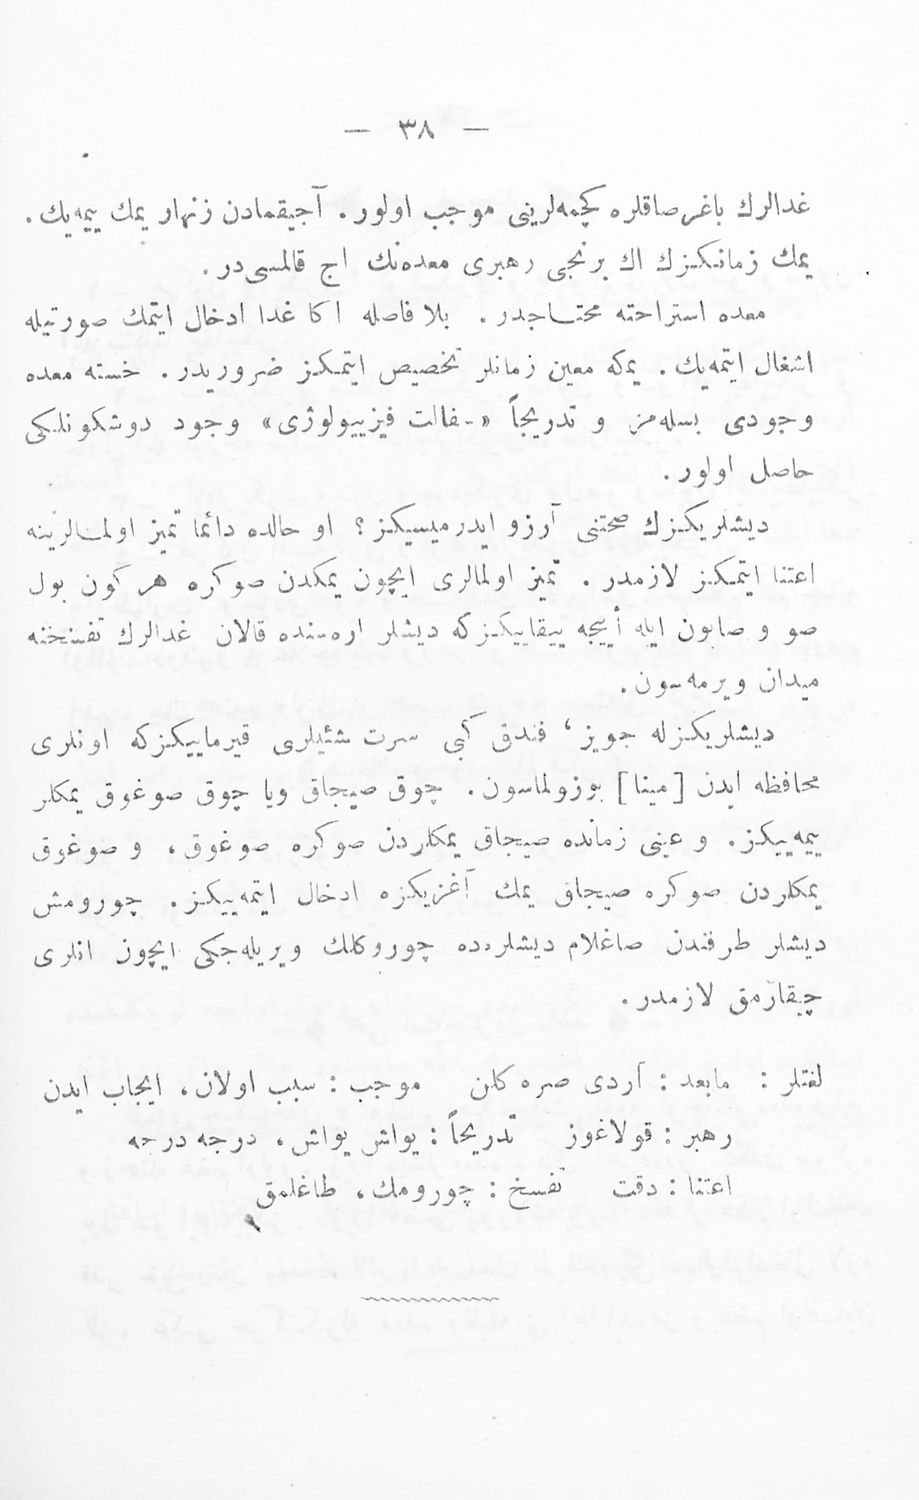 — ٣٨ —
غدالرك باغرصاقلره كچمه‌لرینی موجب اولور. آجیقمادن زنهار یمك ییمه‌یك.
یمك زمانكزك اك برنجی رهبری معده‌نك اج قالمسی‌در.
معده استراحته محتاجدر. بلا فاصله اكا غدا ادخال ایتمك صورتیله
اشغال ایتمه‌یك. یمكه معین زمانلر تخصیص ایتمكز ضروریدر. خسته معده
وجودی بسله‌مز و تدریجاً «سفالت فیزییولوژی» وجود دوشكونلكی
حاصل اولور.
دیشلریكزك صحتنی آرزو ایدرمیسیكز؟ او حالده دائما تمیز اولمالرینه
اعتنا ایتمكز لازمدر. تمیز اولمالری ایچون یمكدن صوكره هر كون بول
صو و صابون ایله أییجه ییقاییكزكه دیشلر اره‌سنده قالان غدالرك تفسخنه
میدان ویرمه‌سون.
دیشلریكزله جویز، فندق كبی سرت شئیلری قیرماییكزكه اونلری
محافظه ایدن [مینا] بوزولماسون. چوق صیجاق ویا چوق صوغوق یمكلر
ییمه‌ییكز. و عینی زمانده صیجاق یمكلردن صوكره صوغوق، و صوغوق
یمكلردن صوكره صیجاق یمك آغزیكزه ادخال ایتمه‌ییكز. چورومش
دیشلر طرفندن صاغلام دیشلرده چوروكلك ویریله‌جكی ایچون انلری
چیقارمق لازمدر.
لغتلر: مابعد: آردی صره كلن موجب: سبب اولان، ایجاب ایدن
رهبر: قولاغوز تدریجاً: یواش یواش، درجه درجه
اعتنا: دقت تفسخ: چورومك، طاغلمق